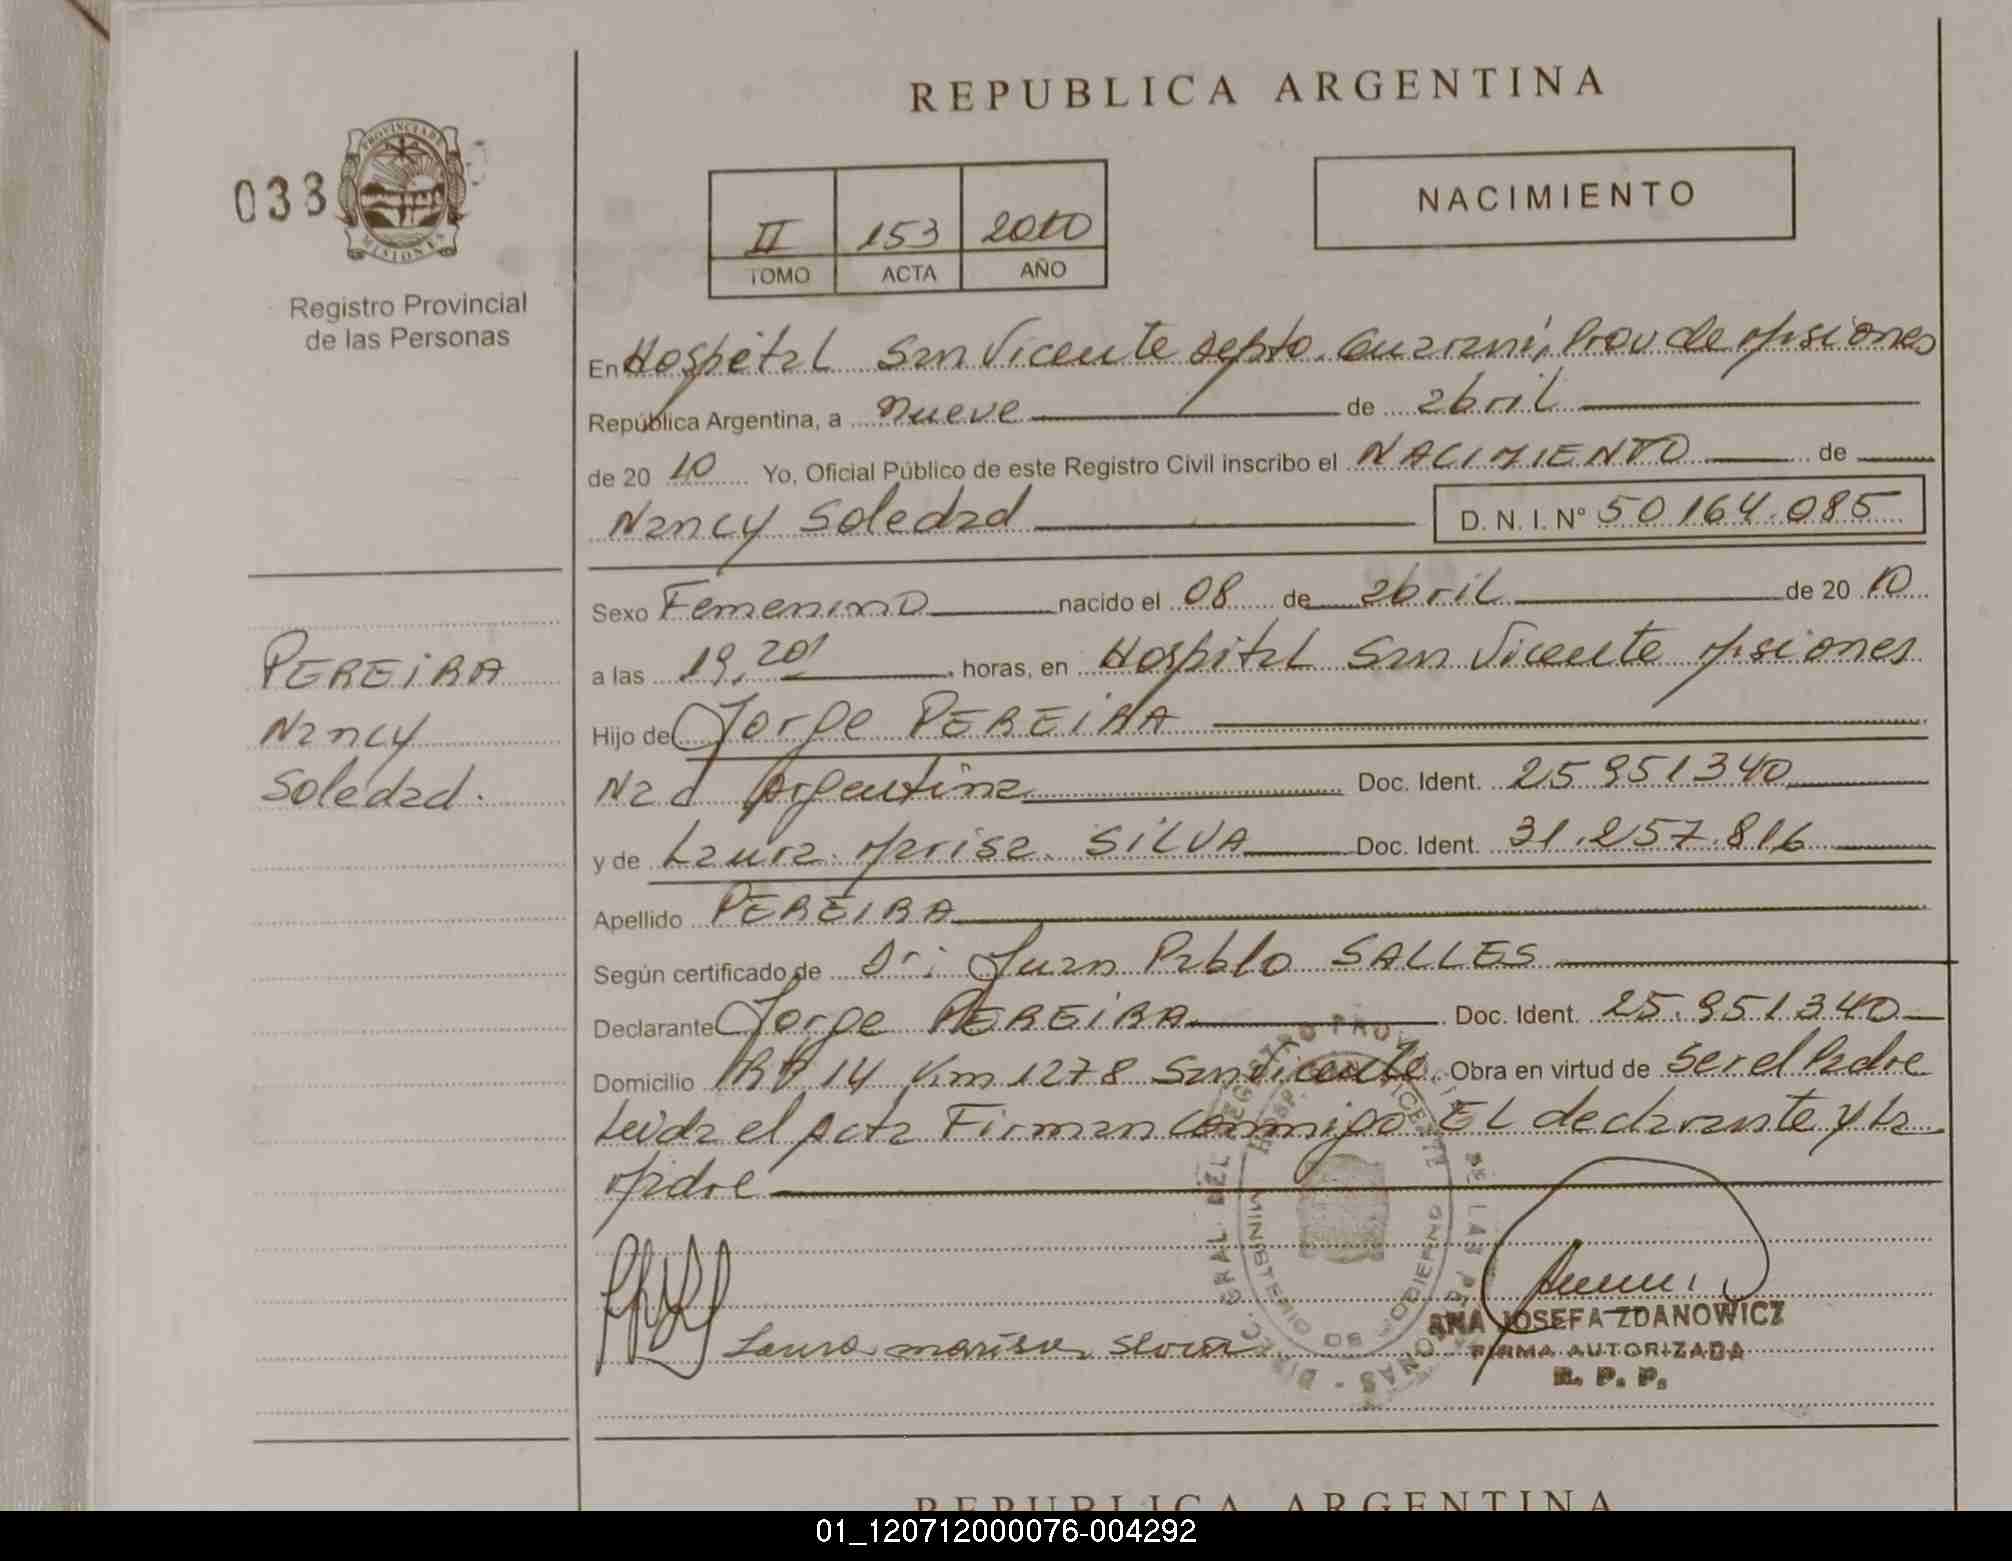 REPUBLICA ARGENTINA
033
PROVINCIA DE
MISIONES
Registro Provincial
de las Personas
II 153 2010
TOMO ACTA AÑO
NACIMIENTO
En Hospital San Vicente depto. Guarani, Prov de Misiones
República Argentina, a nueve de abril
de 20 10 Yo, Oficial Público de este Registro Civil inscribo el NACIMIENTO de
Nancy Soledad D. N. I. Nº 50.164.085
Sexo Femenino nacido el 08 de abril de 20 10
a las 19,20 horas, en Hospital San Vicente Misiones
Hijo de Jorge PEREIRA
Nac Argentina Doc. Ident. 25.951.340
y de Laura Marisa SILVA Doc. Ident. 31.257.816
Apellido PEREIRA
Según certificado de Dr: Juan Pablo SALLES
Declarante Jorge PEREIRA Doc. Ident. 25.951.340
Domicilio RN 14 Km 1278 San Vicente Obra en virtud de Ser el Padre
Leida el Acta Firman Conmigo EL declarante y la
Madre
PEREIRA
Nancy
Soledad.
Laura marisa silva
ANA JOSEFA ZDANOWICZ
FIRMA AUTORIZADA
R. P. P.
DIREC. GRAL. DEL REGISTRO PROV. DE LAS PERSONAS
MINISTERIO DE GOBIERNO
REPUBLICA ARGENTINA
01_120712000076-004292